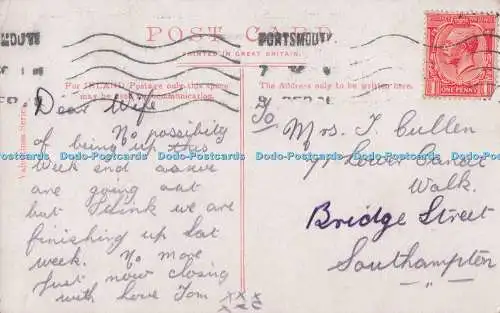 POST CARD
PRINTED IN GREAT BRITAIN.
PORTSMOUTH
For INLAND Postage only this space may be used for communication.
The Address only to be written here.
ONE PENNY
Dear Wife
No possibility
of being up this
week end as we
are going out
but I think we are
finishing up Sat
week. No more
Just now closing
with love Tom xxx
To
Mrs. T. Cullen
71 Lower Canal
Walk.
Bridge Street
Southampton
Dodo-Postcards Dodo-Postcards Dodo-Postcards Dodo-Postcards Dodo-Postcards